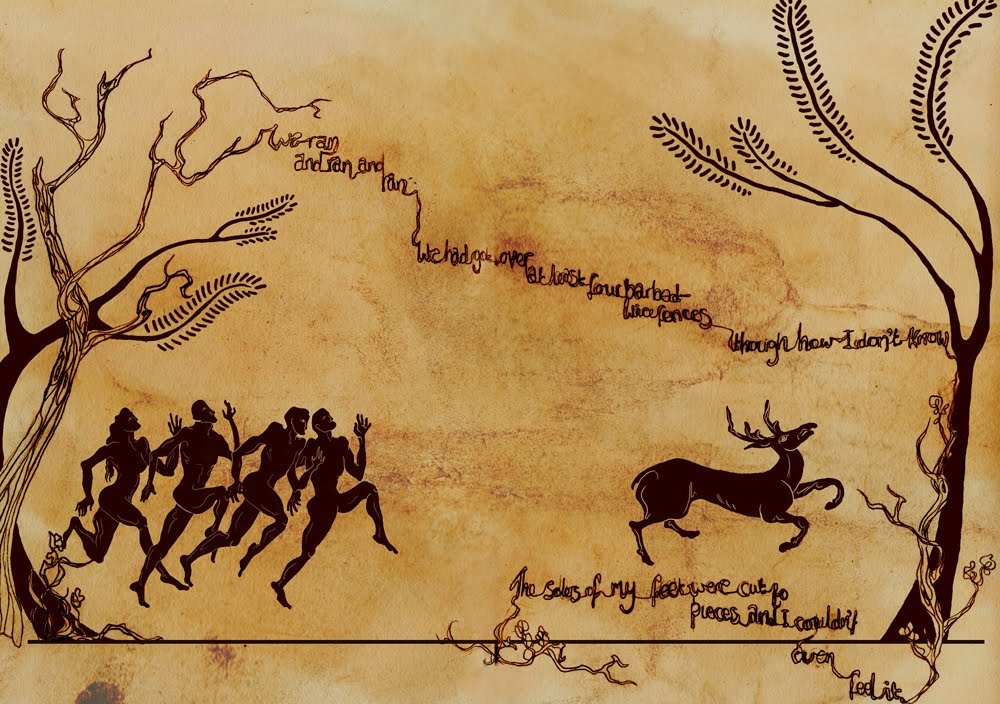 We ran
and ran and
ran
We had got over
at least four barbed
wire fences
though how I don't know
The soles of my feet were cut to
pieces and I couldn't
even
feel it